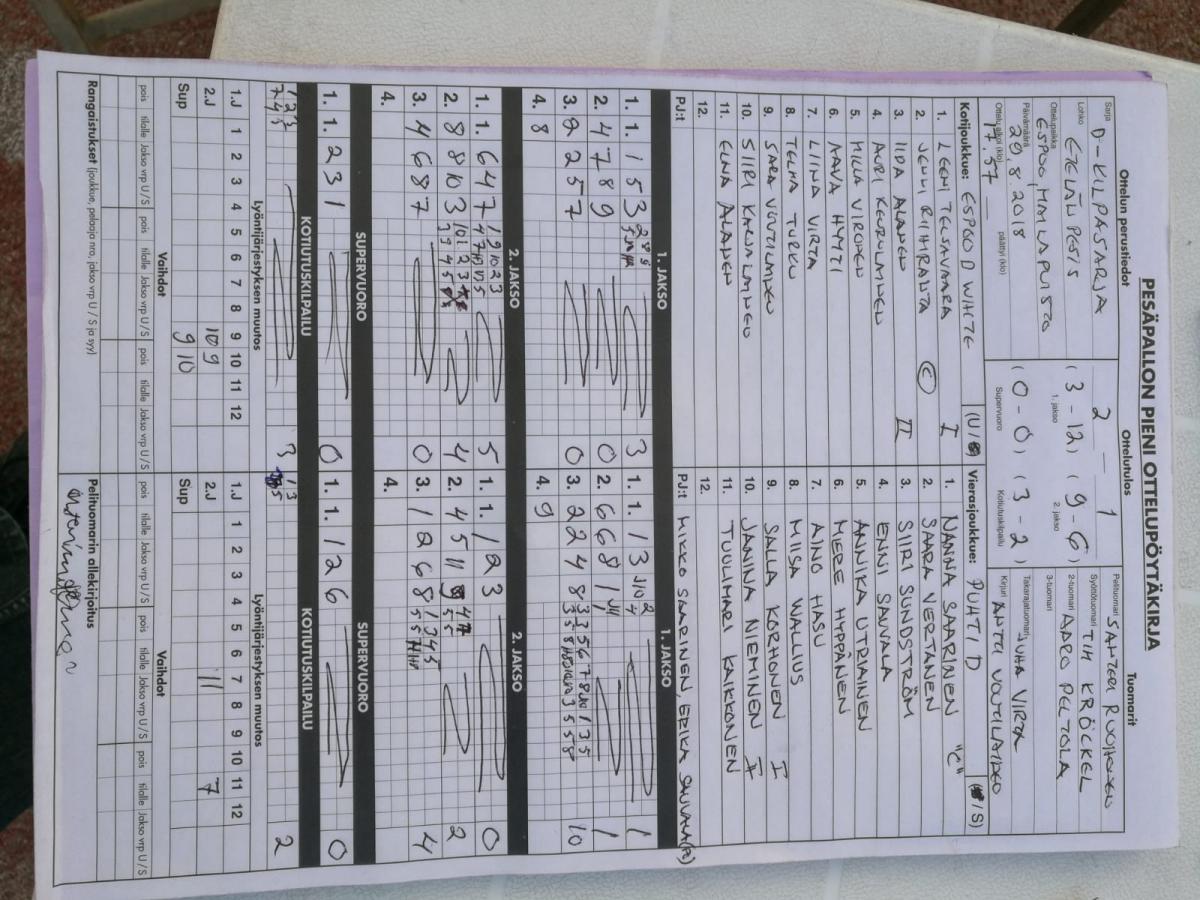 PESÄPALLON PIENI OTTELUPÖYTÄKIRJA
Ottelun perustiedot
Sarja D-KILPASARJA
Lohko ETELÄN PESIS
Ottelupaikka ESPOO, MALAPUISTO
Päivämäärä 29.8.2018
Ottelu alkoi (klo) 17.57 päättyi (klo)
Ottelutulos
2 - 1
( 3 - 12 ) ( 9 - 6 )
1. jakso 2. jakso
( 0 - 0 ) ( 3 - 2 )
Supervuoro Kotiutuskilpailu
Tuomarit
Pelituomari SANTERI RUOHONEN
Syöttötuomari TIM KRÖCKEL
2-tuomari AARO PELTOLA
3-tuomari
Takarajatuomari JUHA VIRTA
Kirjuri ANTTI VOUTILAINEN
Kotijoukkue: ESPOO WHITE (U/S)
1. LEENI TELSAVAARA I
2. JENNI RIIHIRANTA C
3. IIDA ALANEN II
4. AURI KEURULAINEN
5. MILLA VIRONEN
6. AAVA HYYTI
7. LIINA VIRTA
8. TELMA TURKU
9. SARA VOUTILAINEN
10. SIIRI KAUALAINEN
11. ELNA ALANEN
12.
PJ:t
Vierasjoukkue: PUHTI D ( /S)
1. NANNA SAARINEN "C"
2. SAARA VERTANEN
3. SIIRI SUNDSTRÖM
4. ENNI SAUVALA
5. ANNIKA UTRIAINEN
6. MERE HYPPÄNEN
7. AINO HASU
8. MIISA WALLIUS
9. SALLA KORHONEN I
10. JANINA NIEMINEN II
11. TUULIMARI KAIKKONEN
12.
PJ:t MIKKO SAARINEN, ERIKA SAUVALA (PE)
1. JAKSO
1. 1. 1 5 3 3
2. 4 7 8 9 0
3. 2 2 5 7 0
4. 8
1. JAKSO
1. 1. 1 3 1
2. 6 6 8 1 1
3. 2 2 4 8 10
4. 9
2. JAKSO
1. 1. 6 4 7 1 9 10 2 3 5
2. 8 8 10 3 4
3. 4 6 8 7 0
4.
2. JAKSO
1. 1. 1 2 3 0
2. 4 5 11 2
3. 1 2 6 8 1 3 4 5 4
4.
SUPERVUORO
1. 1. 2 3 1 0
SUPERVUORO
1. 1. 1 2 6 0
KOTIUTUSKILPAILU
1 2 3
7 4 5 3
KOTIUTUSKILPAILU
1 3
5 2
Lyöntijärjestyksen muutos
1 2 3 4 5 6 7 8 9 10 11 12
1.J
2.J 10 9
Sup 9 10
Lyöntijärjestyksen muutos
1 2 3 4 5 6 7 8 9 10 11 12
1.J
2.J 11 7
Sup
Vaihdot
pois tilalle Jakso vrp U/S pois tilalle Jakso vrp U/S pois tilalle Jakso vrp U/S
Vaihdot
pois tilalle Jakso vrp U/S pois tilalle Jakso vrp U/S pois tilalle Jakso vrp U/S
Rangaistukset (joukkue, pelaaja nro, jakso vrp U / S ja syy)
Pelituomarin allekirjoitus